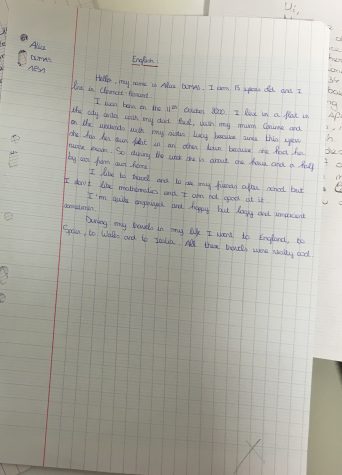 Alice
DUMAS
English
Hello, my name is Alice DUMAS. I am 15 years old and I
live in Clermont Ferrand.
I was born on the 11th october 2000. I live in a flat in
the city center with my dad Paul, with my mum Corinne and
on the weekends with my sister Lucy because since this year
she has her own flat in an other town because she had her
exam. So during the week she is about one hour and a half
by car from our home.
I like to travel and to see my friends after school but
I don't like mathematics and I am not good at it.
I'm quite organized and happy but lazy and impatient
sometimes.
During my travels in my life I went to England, to
Spain, to Wales and to Italia. All these travels were really cool.